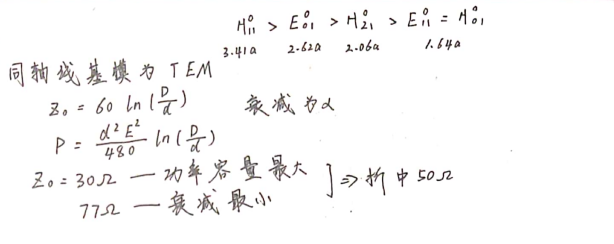 H₁₁⁰ > E₀₁⁰ > H₂₁⁰ > E₁₁⁰ = H₀₁⁰
3.41a 2.62a 2.06a 1.64a
同轴线基模为 TEM
Z₀ = 60 ln(D/d) 衰减为α
P = d²E²/480 ln(D/d)
Z₀ = 30Ω — 功率容量最大 ] ⇒ 折中 50Ω
77Ω — 衰减最小